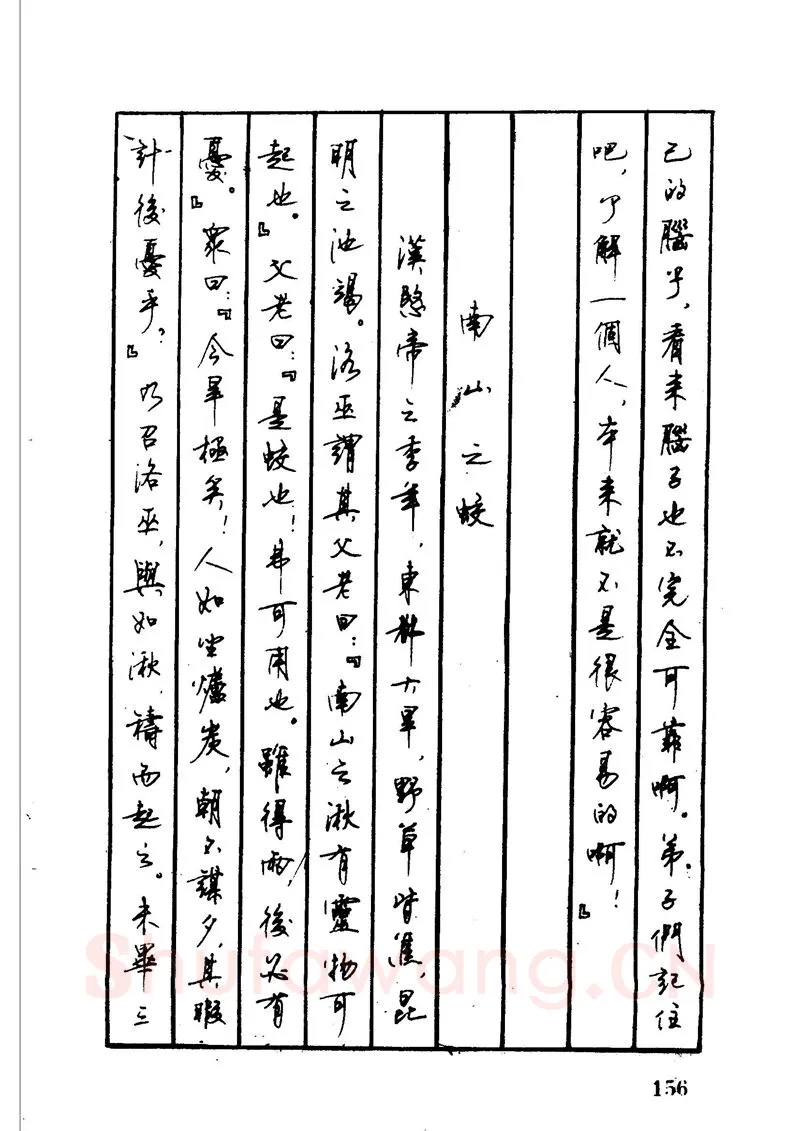 己的腦子，看来腦子也不完全可靠啊。弟子們記住
吧，了解一個人，本来就不是很容易的啊！』
南山之蛟
漢愍帝之季年，東都大旱，野草皆焦，昆
明之池竭。洛巫謂其父老曰：『南山之湫有靈物可
起也。』父老曰：『是蛟也！弗可用也。雖得雨，後必有
憂。』衆曰：『今旱極矣！人如坐爐炭，朝不謀夕，其暇
計後憂乎？』乃召洛巫，與如湫，禱而起之。未畢三
Shufawang.CN
156